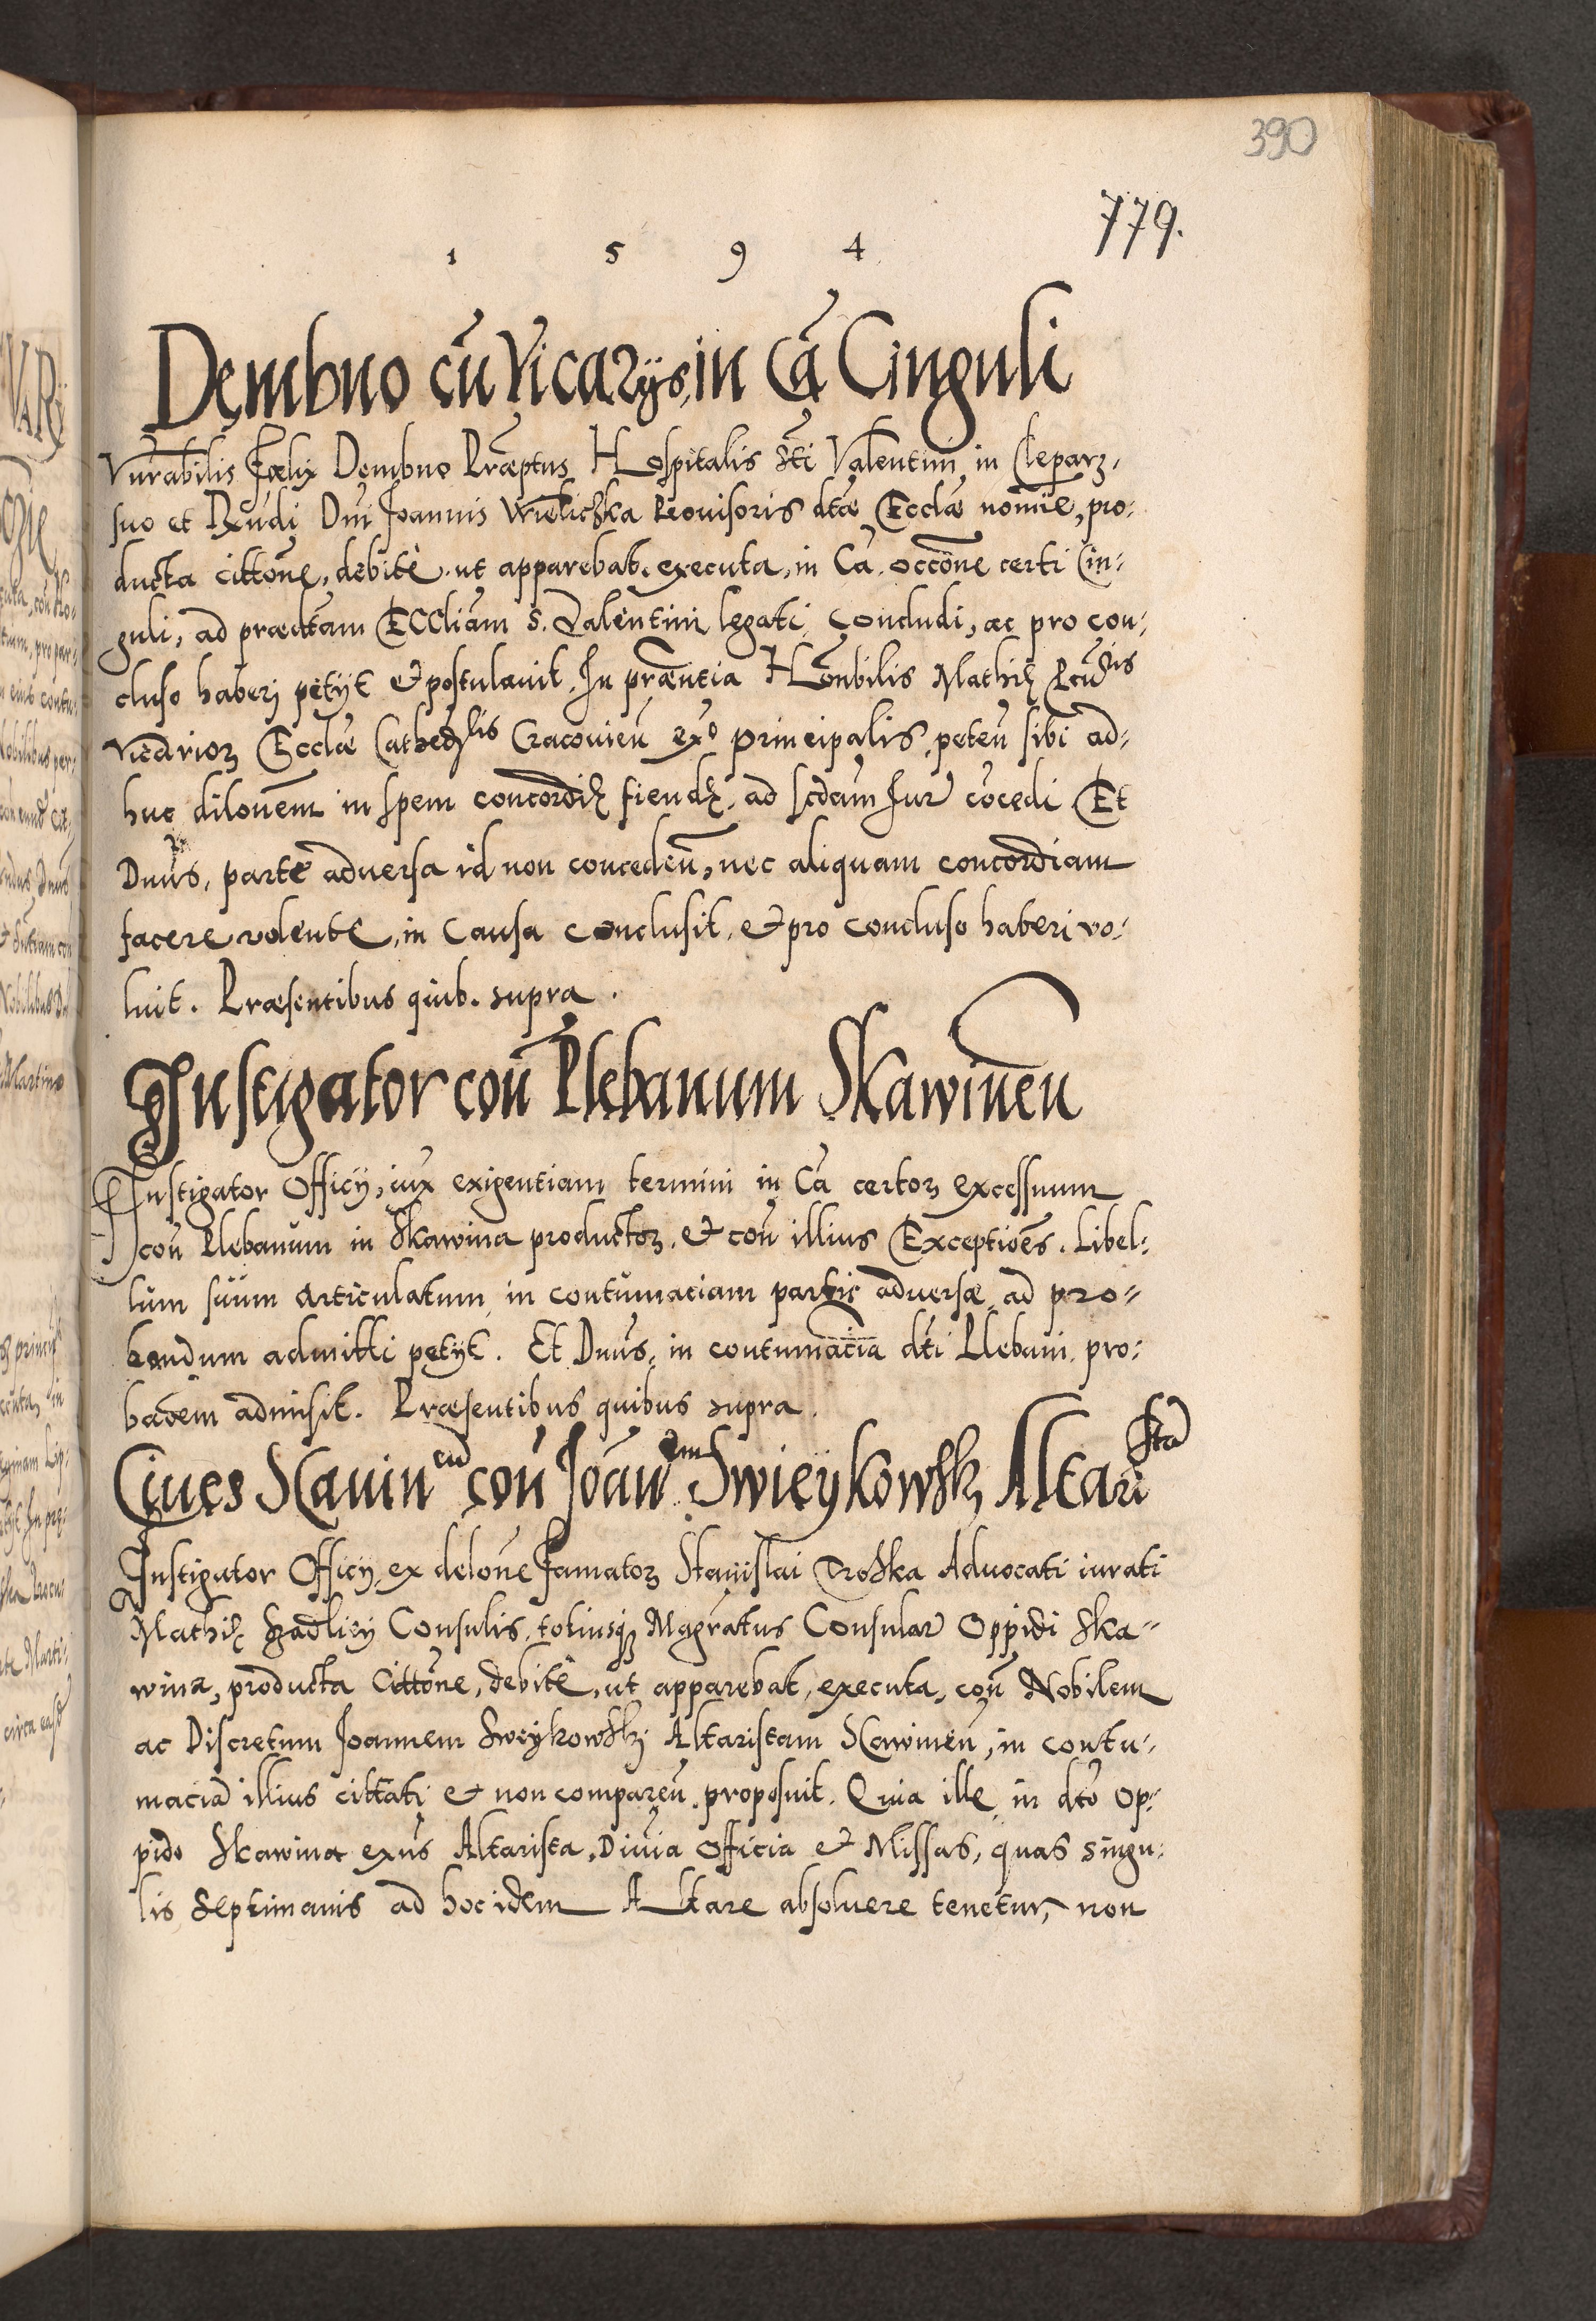 390
779.
1 5 9 4
Dembno cũ Vicarijs, in Cã Cinguli
Vnrabilis Fœlix Dembno Præptus Hospitalis Sti Valentini in Cleparz,
suo et Rxndi Dni Joannis Wieliczka Prouisoris dtæ Ecclæ nomīe, pro:
ducta cittōne, debitè, ut apparebat, executa, in Cã occōne certi Cin:
guli, ad prædctam Eccliam S. Valentini legati, concludi, ac pro con:
cluso haberj petijt et postulauit. In præntia Honbilis Mathię Pcuris
vicariorz Ecclæ Cathedrlis Cracouien̄ exo principalis, peten̄ sibi ad:
huc dilonem in spem concordię fiendę, ad scdam Jur cōcedi Et
Dnus, parte aduersa id non conceden̄, nec aliquam concordiam
facere volente, in Causa conclusit, et pro concluso haberi vo:
luit. Præsentibus quib. supra.
Instigator con̄ Plebanum Skawinen̄
Instigator Officij, iux exigentiam termini in Cã certorz excessuum
con̄ Plebanum in Skawina productorz, et con̄ illius Exceptiōes, Libel:
lum suum Articulatum, in contumaciam partis aduersæ ad pro=
bandum admitti petijt. Et Dnus, in contumaciã dti Plebani, pro:
baōem admisit. Præsentibus quibus supra.
Ciues Scauin en̄ con̄ Joan̄ em Swieykowskj Altari stã
Instigator Officij, ex delone Famatorz Stanislai Droska Aduocati iurati
Mathię Consulis, totiusqz Magratus Consular Oppidi Ska=
wina, producta Cittōne, debitè, ut apparebat, executa, con̄ Nobilem
ac Discretum Joannem Sweykowskj Altaristam Scawinen̄, in contu:
maciã illius cittati et non comparen̄ proposuit. Quia ille in dto Op:
pido Skawina exns Altarista, Diuia officia et Missas, quas singu:
lis Septimanis ad hoc idem Altare absoluere tenetur, non